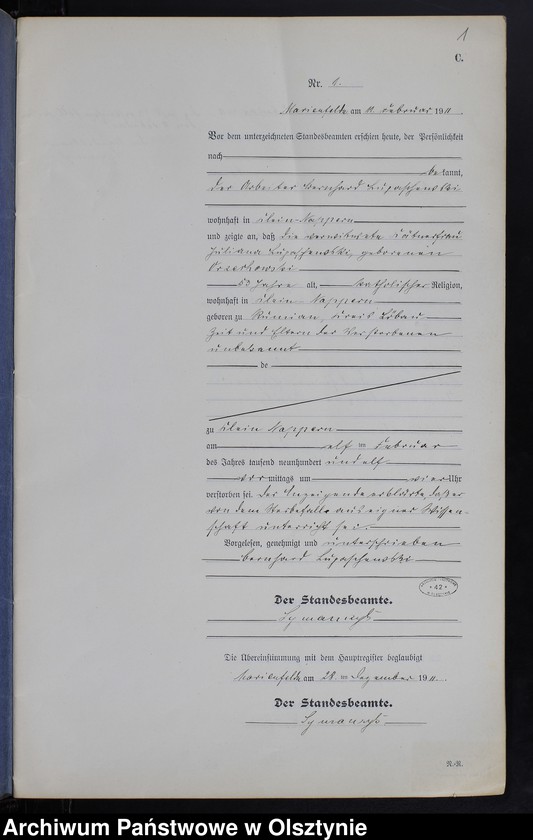 1
C.
Nr. 1.
Marienfelde am 11. Februar 1911.
Vor dem unterzeichneten Standesbeamten erschien heute, der Persönlichkeit
nach
bekannt,
der Arbeiter Bernhard Lugaschewski
wohnhaft in Klein Nappern
und zeigte an, daß die verwitwete Kätnerfrau
Juliana Lugaschewski, geborenen
Orzechowski
Jahre alt, katholischer Religion,
wohnhaft in Klein Nappern
geboren zu Rumian, Kreis Löbau
Zeit und Eltern der Verstorbenen
unbekannt
de
zu Klein Nappern
am elf ten Februar
des Jahres tausend neunhundert und elf
vor mittags um vier Uhr
verstorben sei. Der Anzeigende erklärte, daß er
von dem Sterbefalle aus eigner Wissen-
schaft unterrichtet sei.
Vorgelesen, genehmigt und unterschrieben
Bernhard Lugaschewski
42
Der Standesbeamte.
Die Übereinstimmung mit dem Hauptregister beglaubigt
Marienfelde am ten Dezember 1911.
Der Standesbeamte.
R.-R.
Archiwum Państwowe w Olsztynie